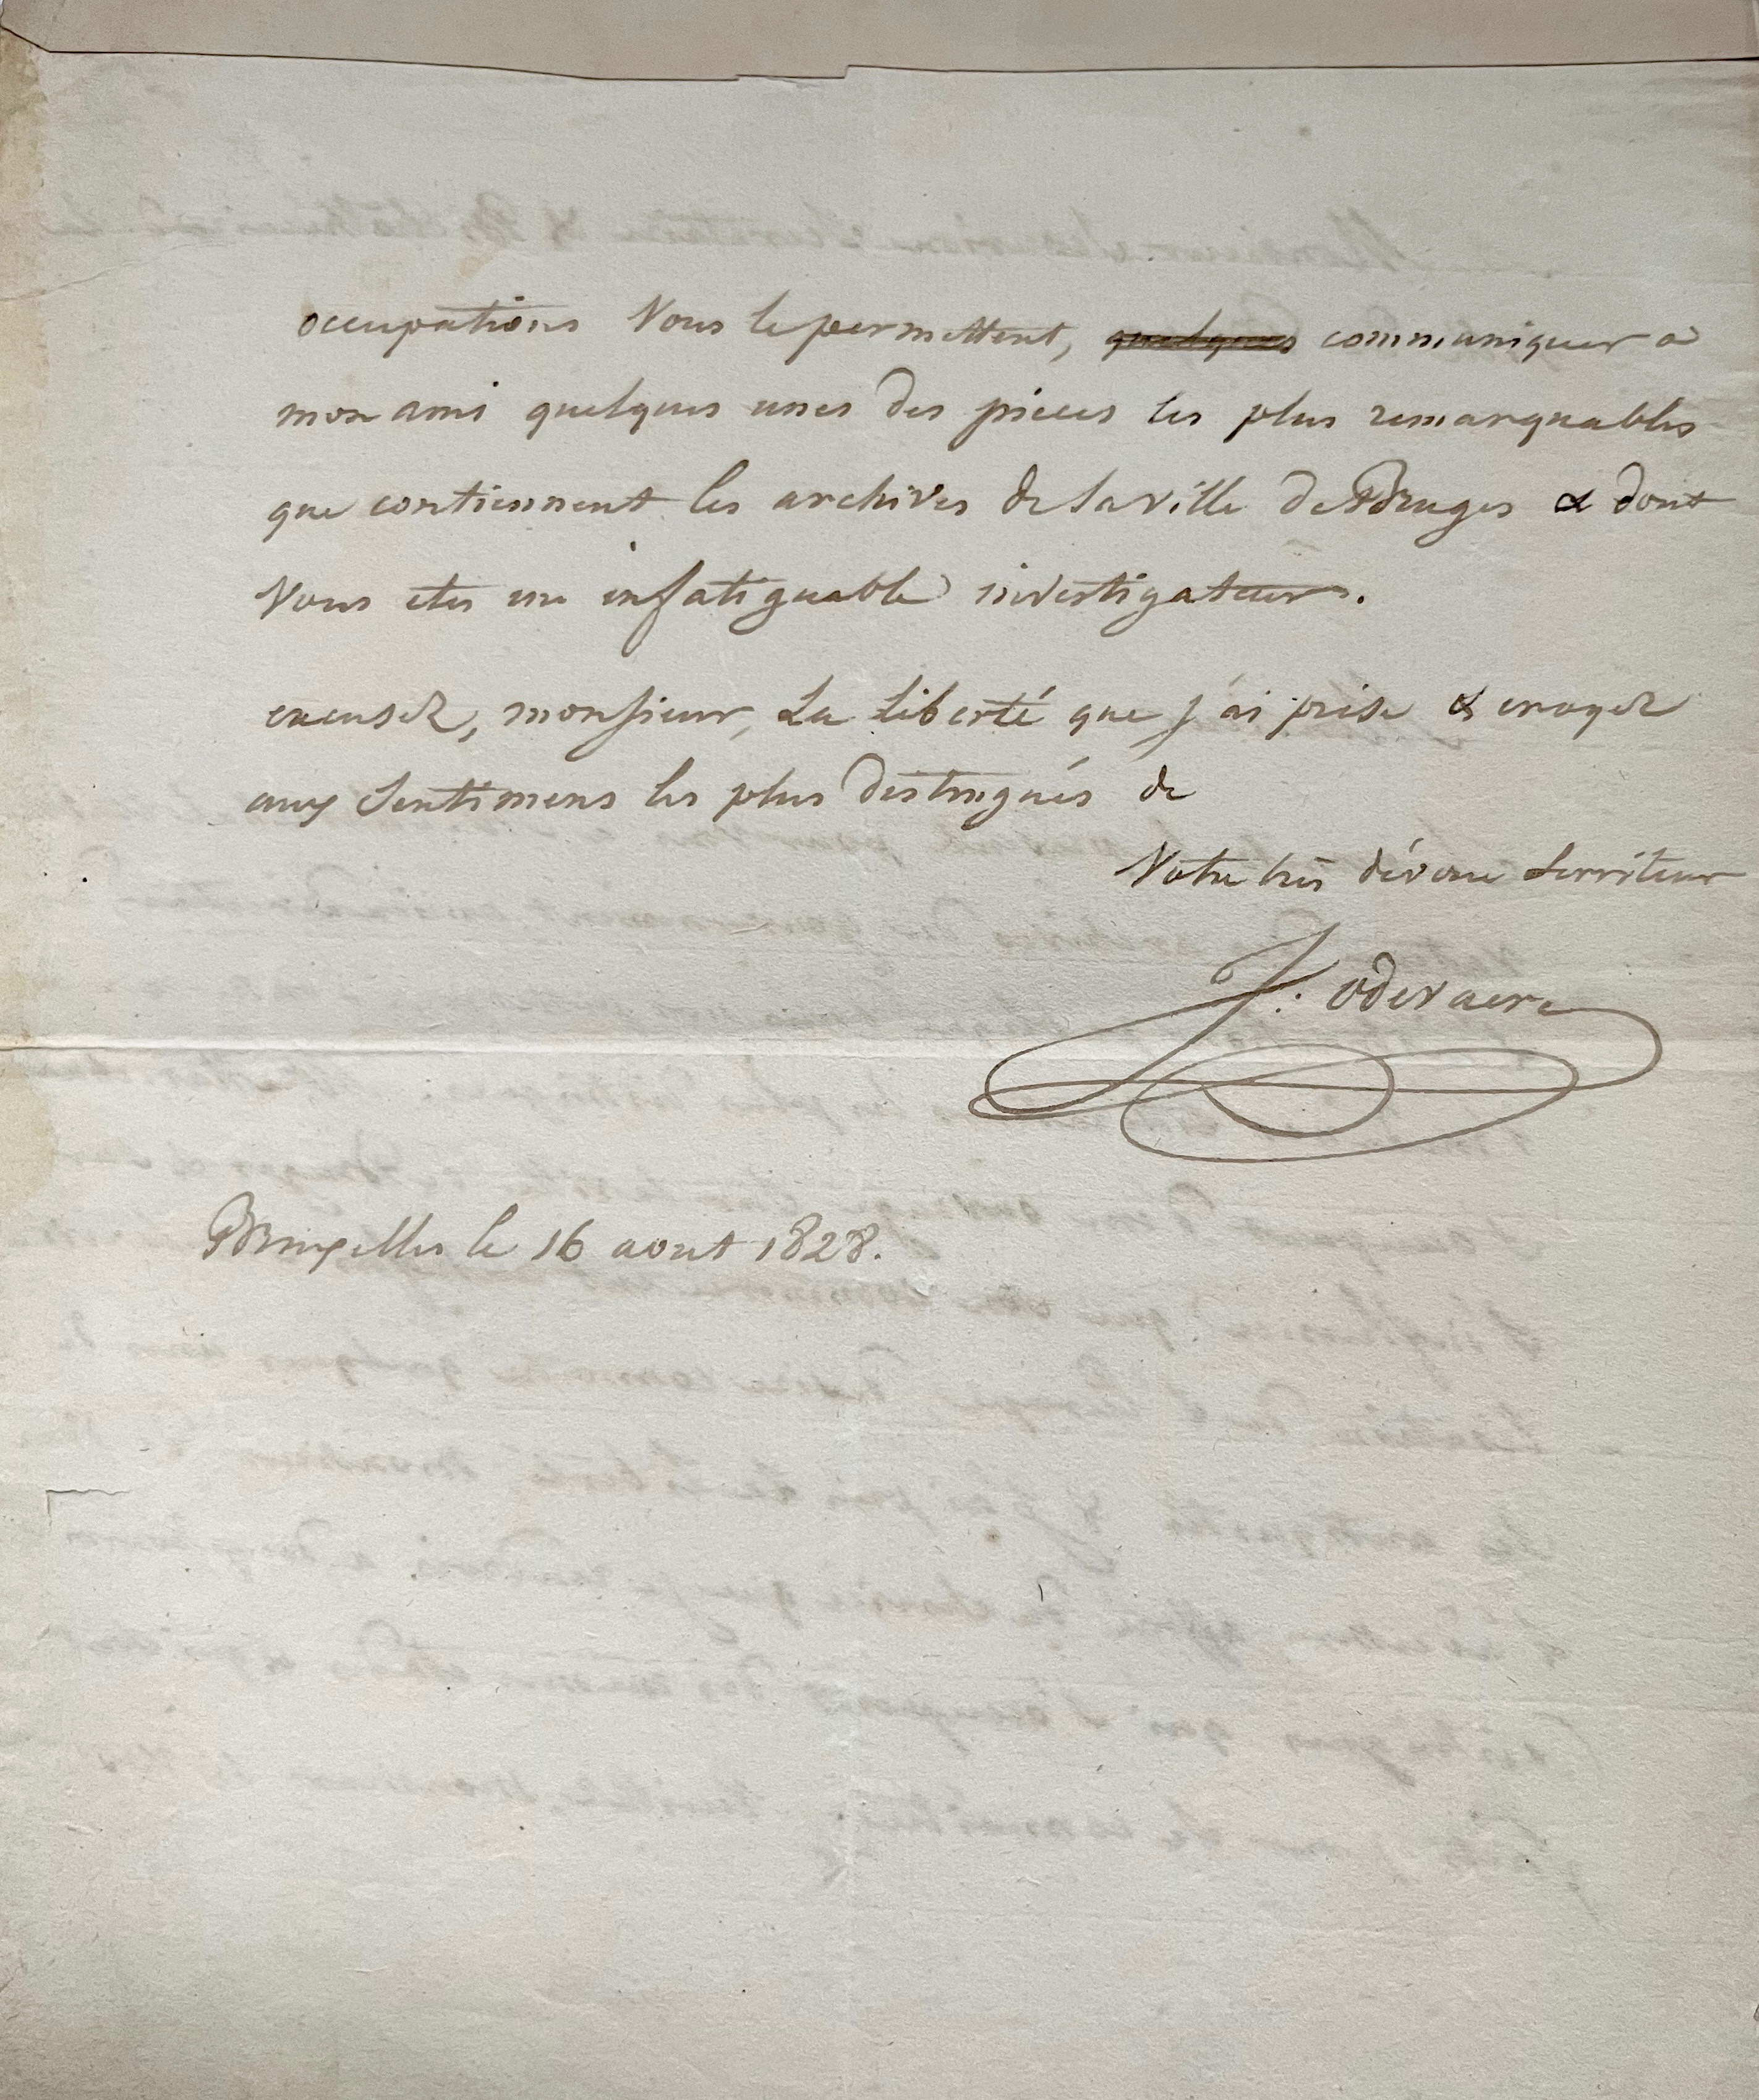 occupations Vous le permettent, quelques communiquer a
mon ami quelques unes des pieces les plus remarquables
que contiennent les archives de la ville de Bruges & dont
Vous etes un infatiguable investigateur.
excusez, monsieur, La Liberté que j'ai prise & croyez
aux Sentimens les plus distingués de
Votre très dévoué Serviteur
J. odevaere
Bruxelles le 16 aout 1828.